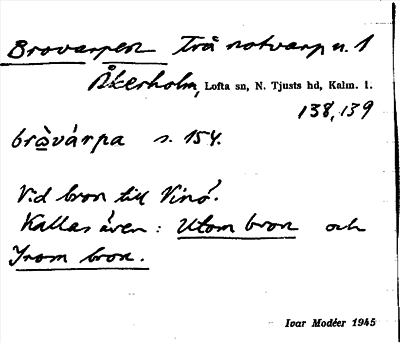 Brovarpen Två notvarp n. 1
Åkerholm, Lofta sn, N. Tjusts hd, Kalm. l.
138, 139
bròvárpa s. 154.
Vid bron till Vinö.
Kallas även: Utom bron och
Inom bron.
Ivar Modéer 1945